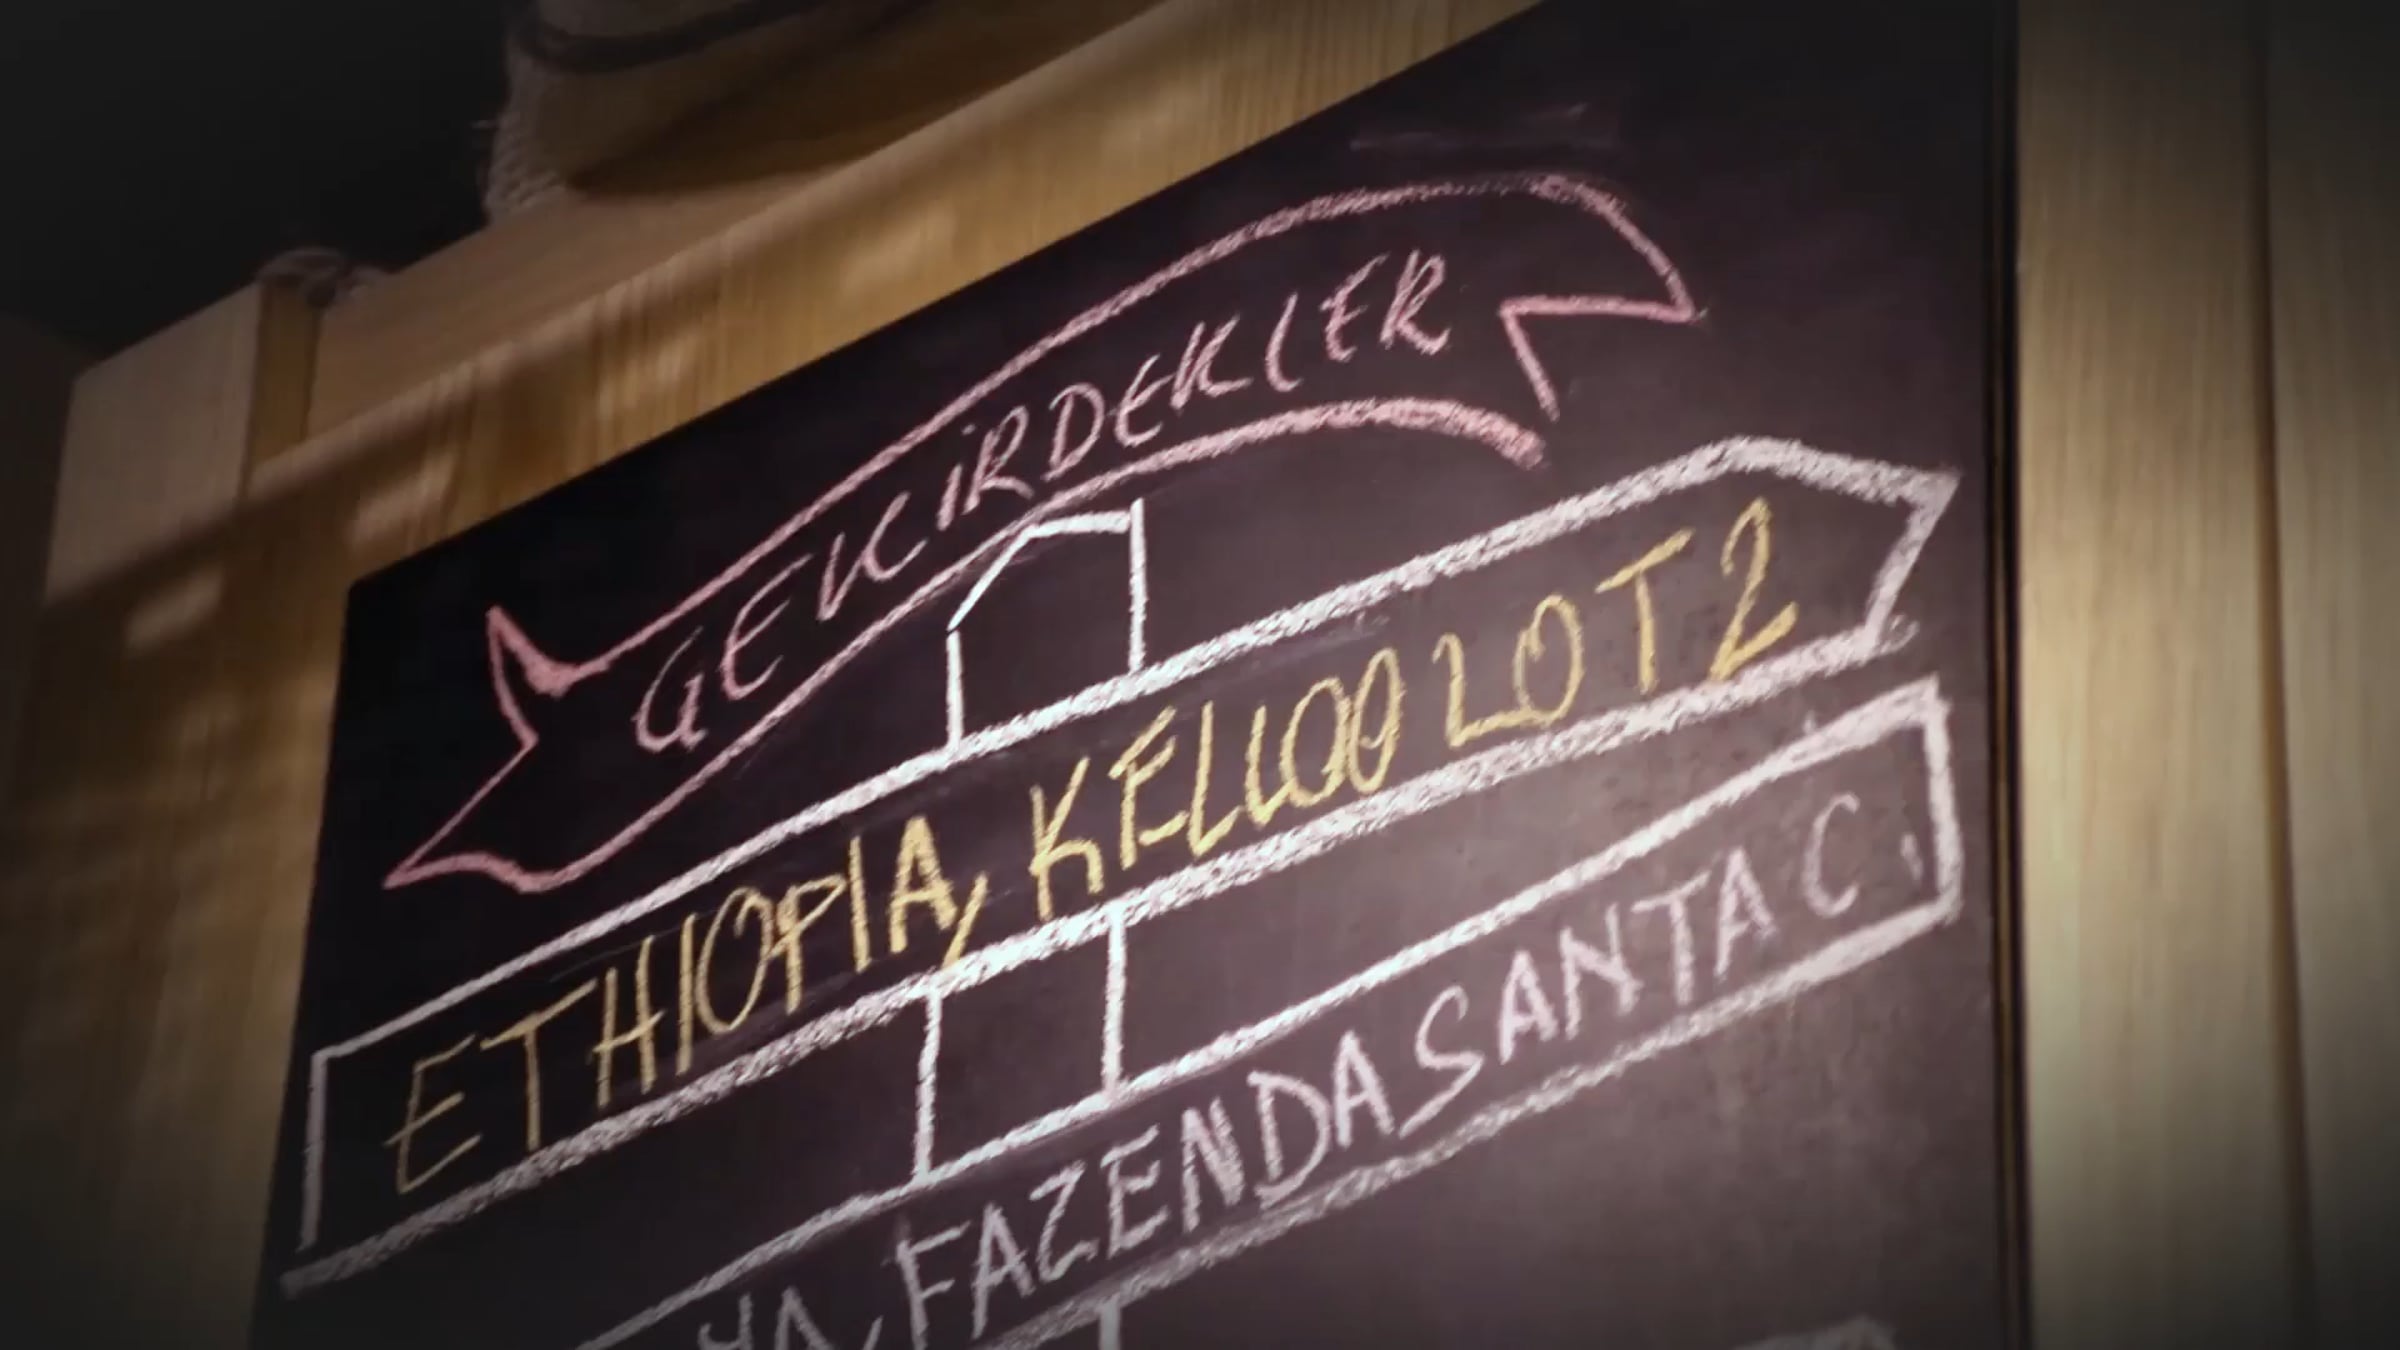 GEKİRDEKLER
ETHIOPIA, KELLOO LOT 2
FAZENDA SANTA C